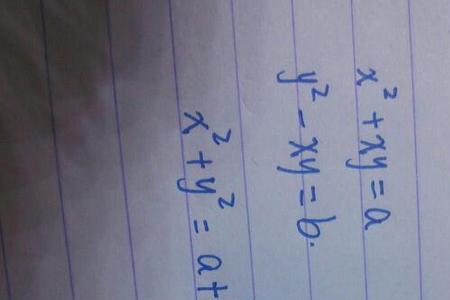 x² + xy = a
y² - xy = b.
x² + y² = a+